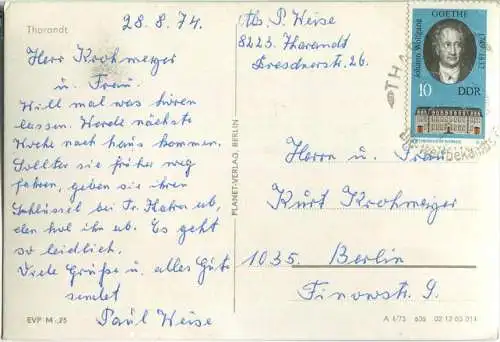 Tharandt
28.8.74.
Herr Krohmeyer
u. Frau.
Will mal was hören
lassen. Werde nächste
Woche nach haus kommen.
Sollten sie früher weg
fahren, geben sie ihren
Schlüssel bei Fr. ab,
den hol ihn ab. Es geht
so leidlich.
Viele Grüße u. alles Gute
sendet
Paul Weise
EVP M -,25
PLANET-VERLAG, BERLIN
Abs. P. Weise
8223. Tharandt
Dresdnerstr. 26.
GOETHE
Johann Wolfgang
1749-1832
10
DDR
THA
Herrn u. Frau
Kurt Krohmeyer
1035. Berlin
Finowstr. 9.
A 1/73 606 02 12 03 014